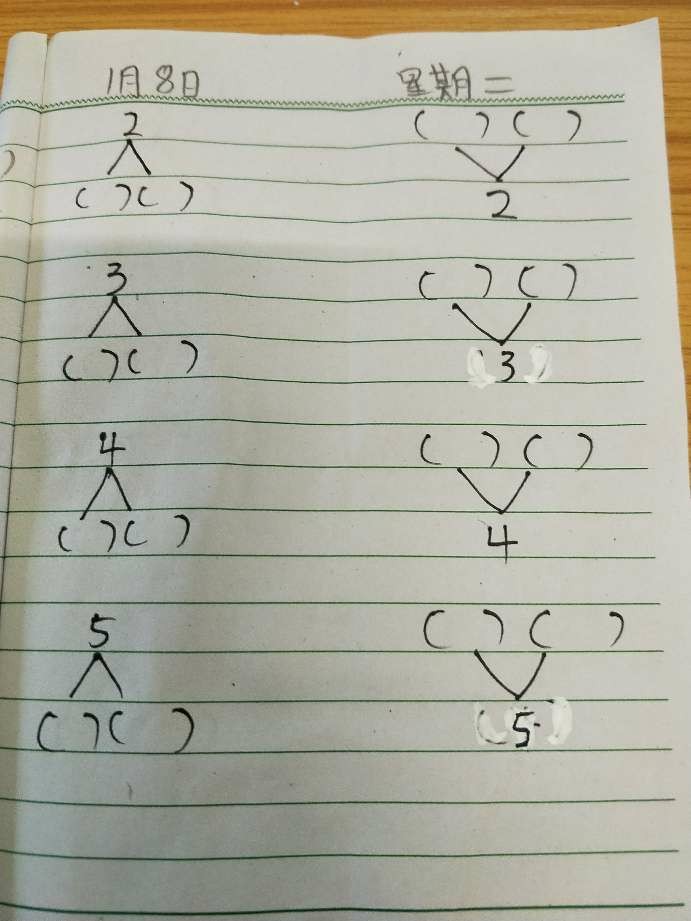 1月8日 星期二
2 ( ) ( )
( ) ( ) 2
3 ( ) ( )
( ) ( ) 3
4 ( ) ( )
( ) ( ) 4
5 ( ) ( )
( ) ( ) 5